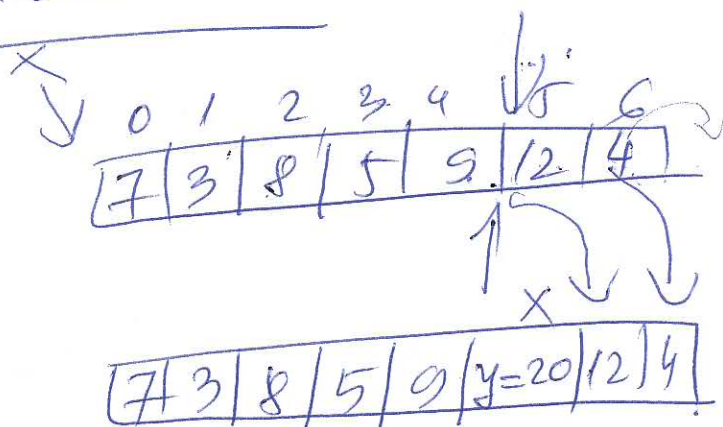 x
0 1 2 3 4 5 6
7 3 8 5 9 12 4
x
7 3 8 5 9 y=20 12 4